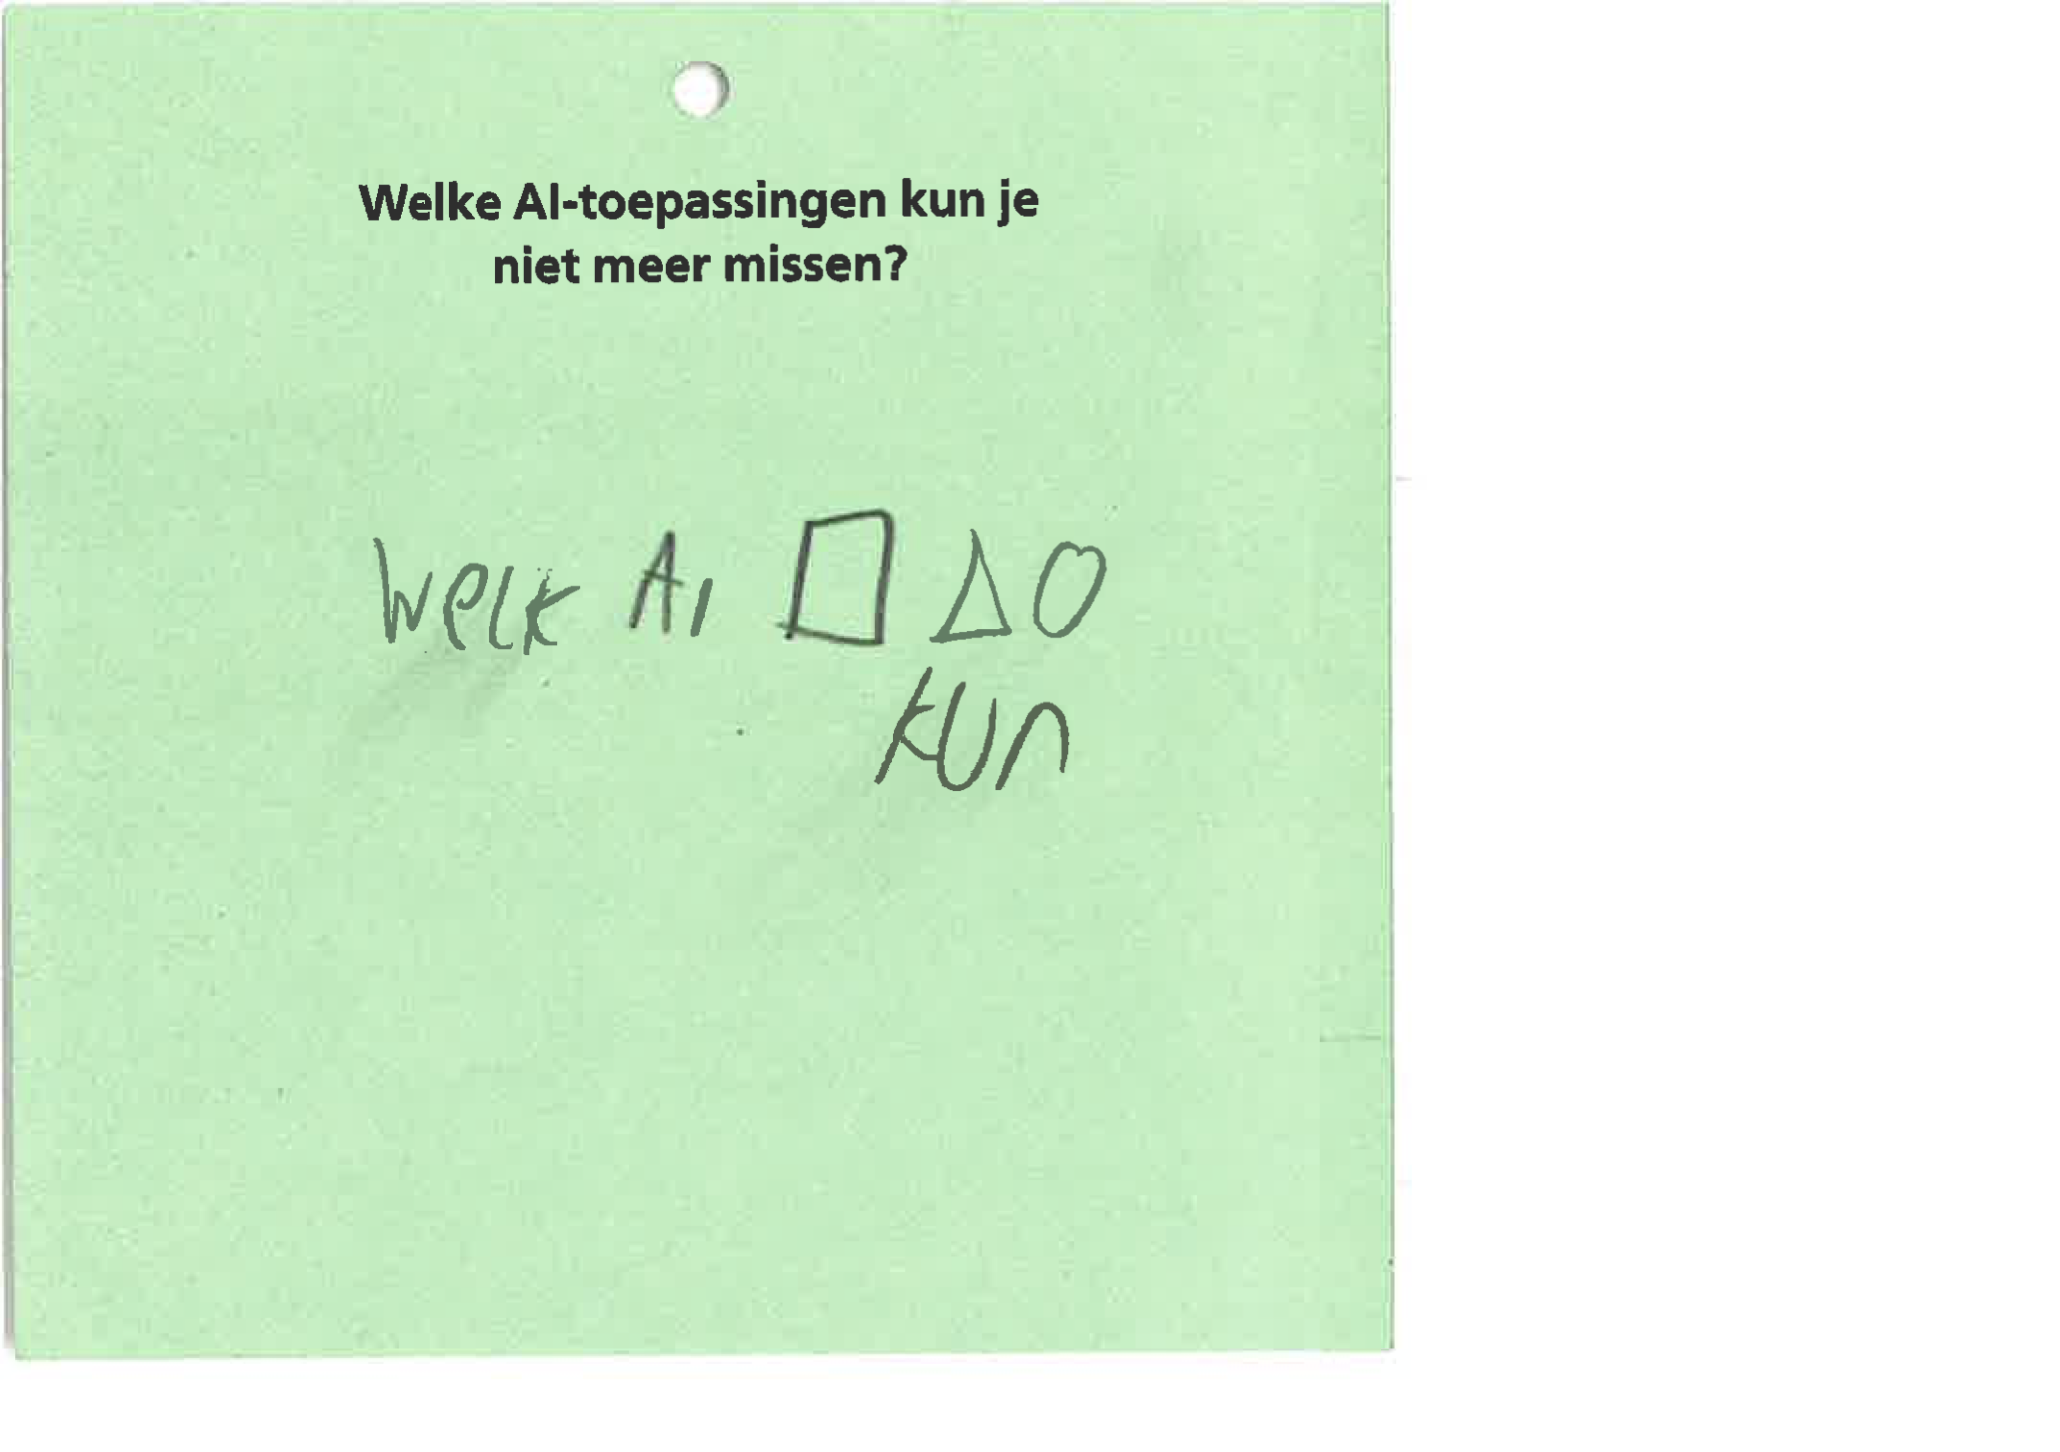 Welke AI-toepassingen kun je
niet meer missen?
Welk AI □ △ O
kun